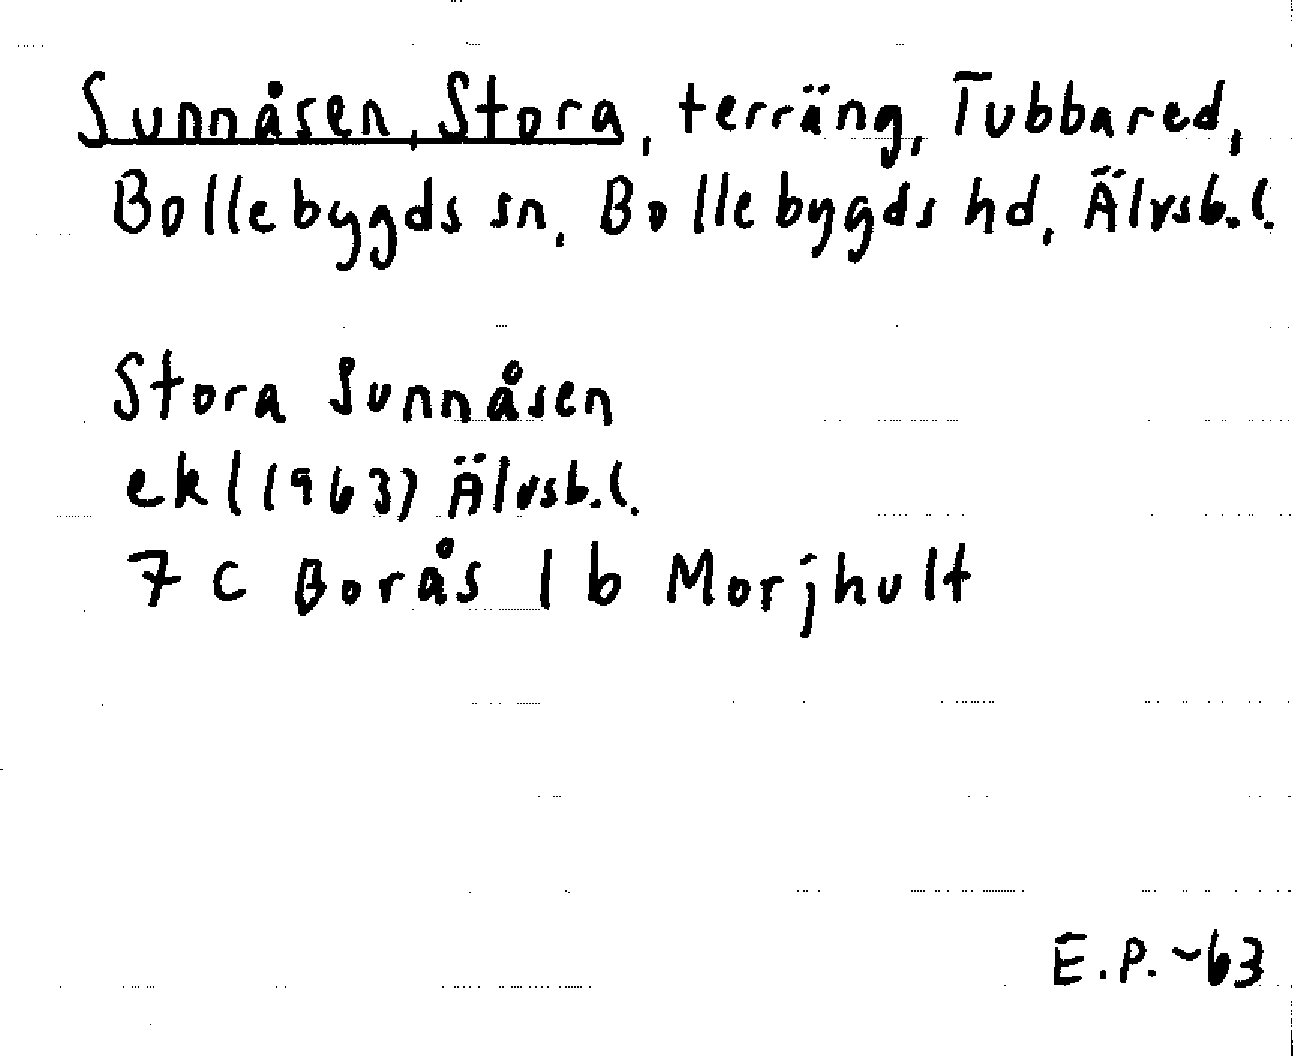 Sunnåsen, Stora, terräng, Tubbared,
Bollebygds sn, Bollebygds hd, Älvsb.l.
Stora Sunnåsen
ekl (1963) Älvsb.l.
7 C Borås 1 b Morjhult
E.P. -63